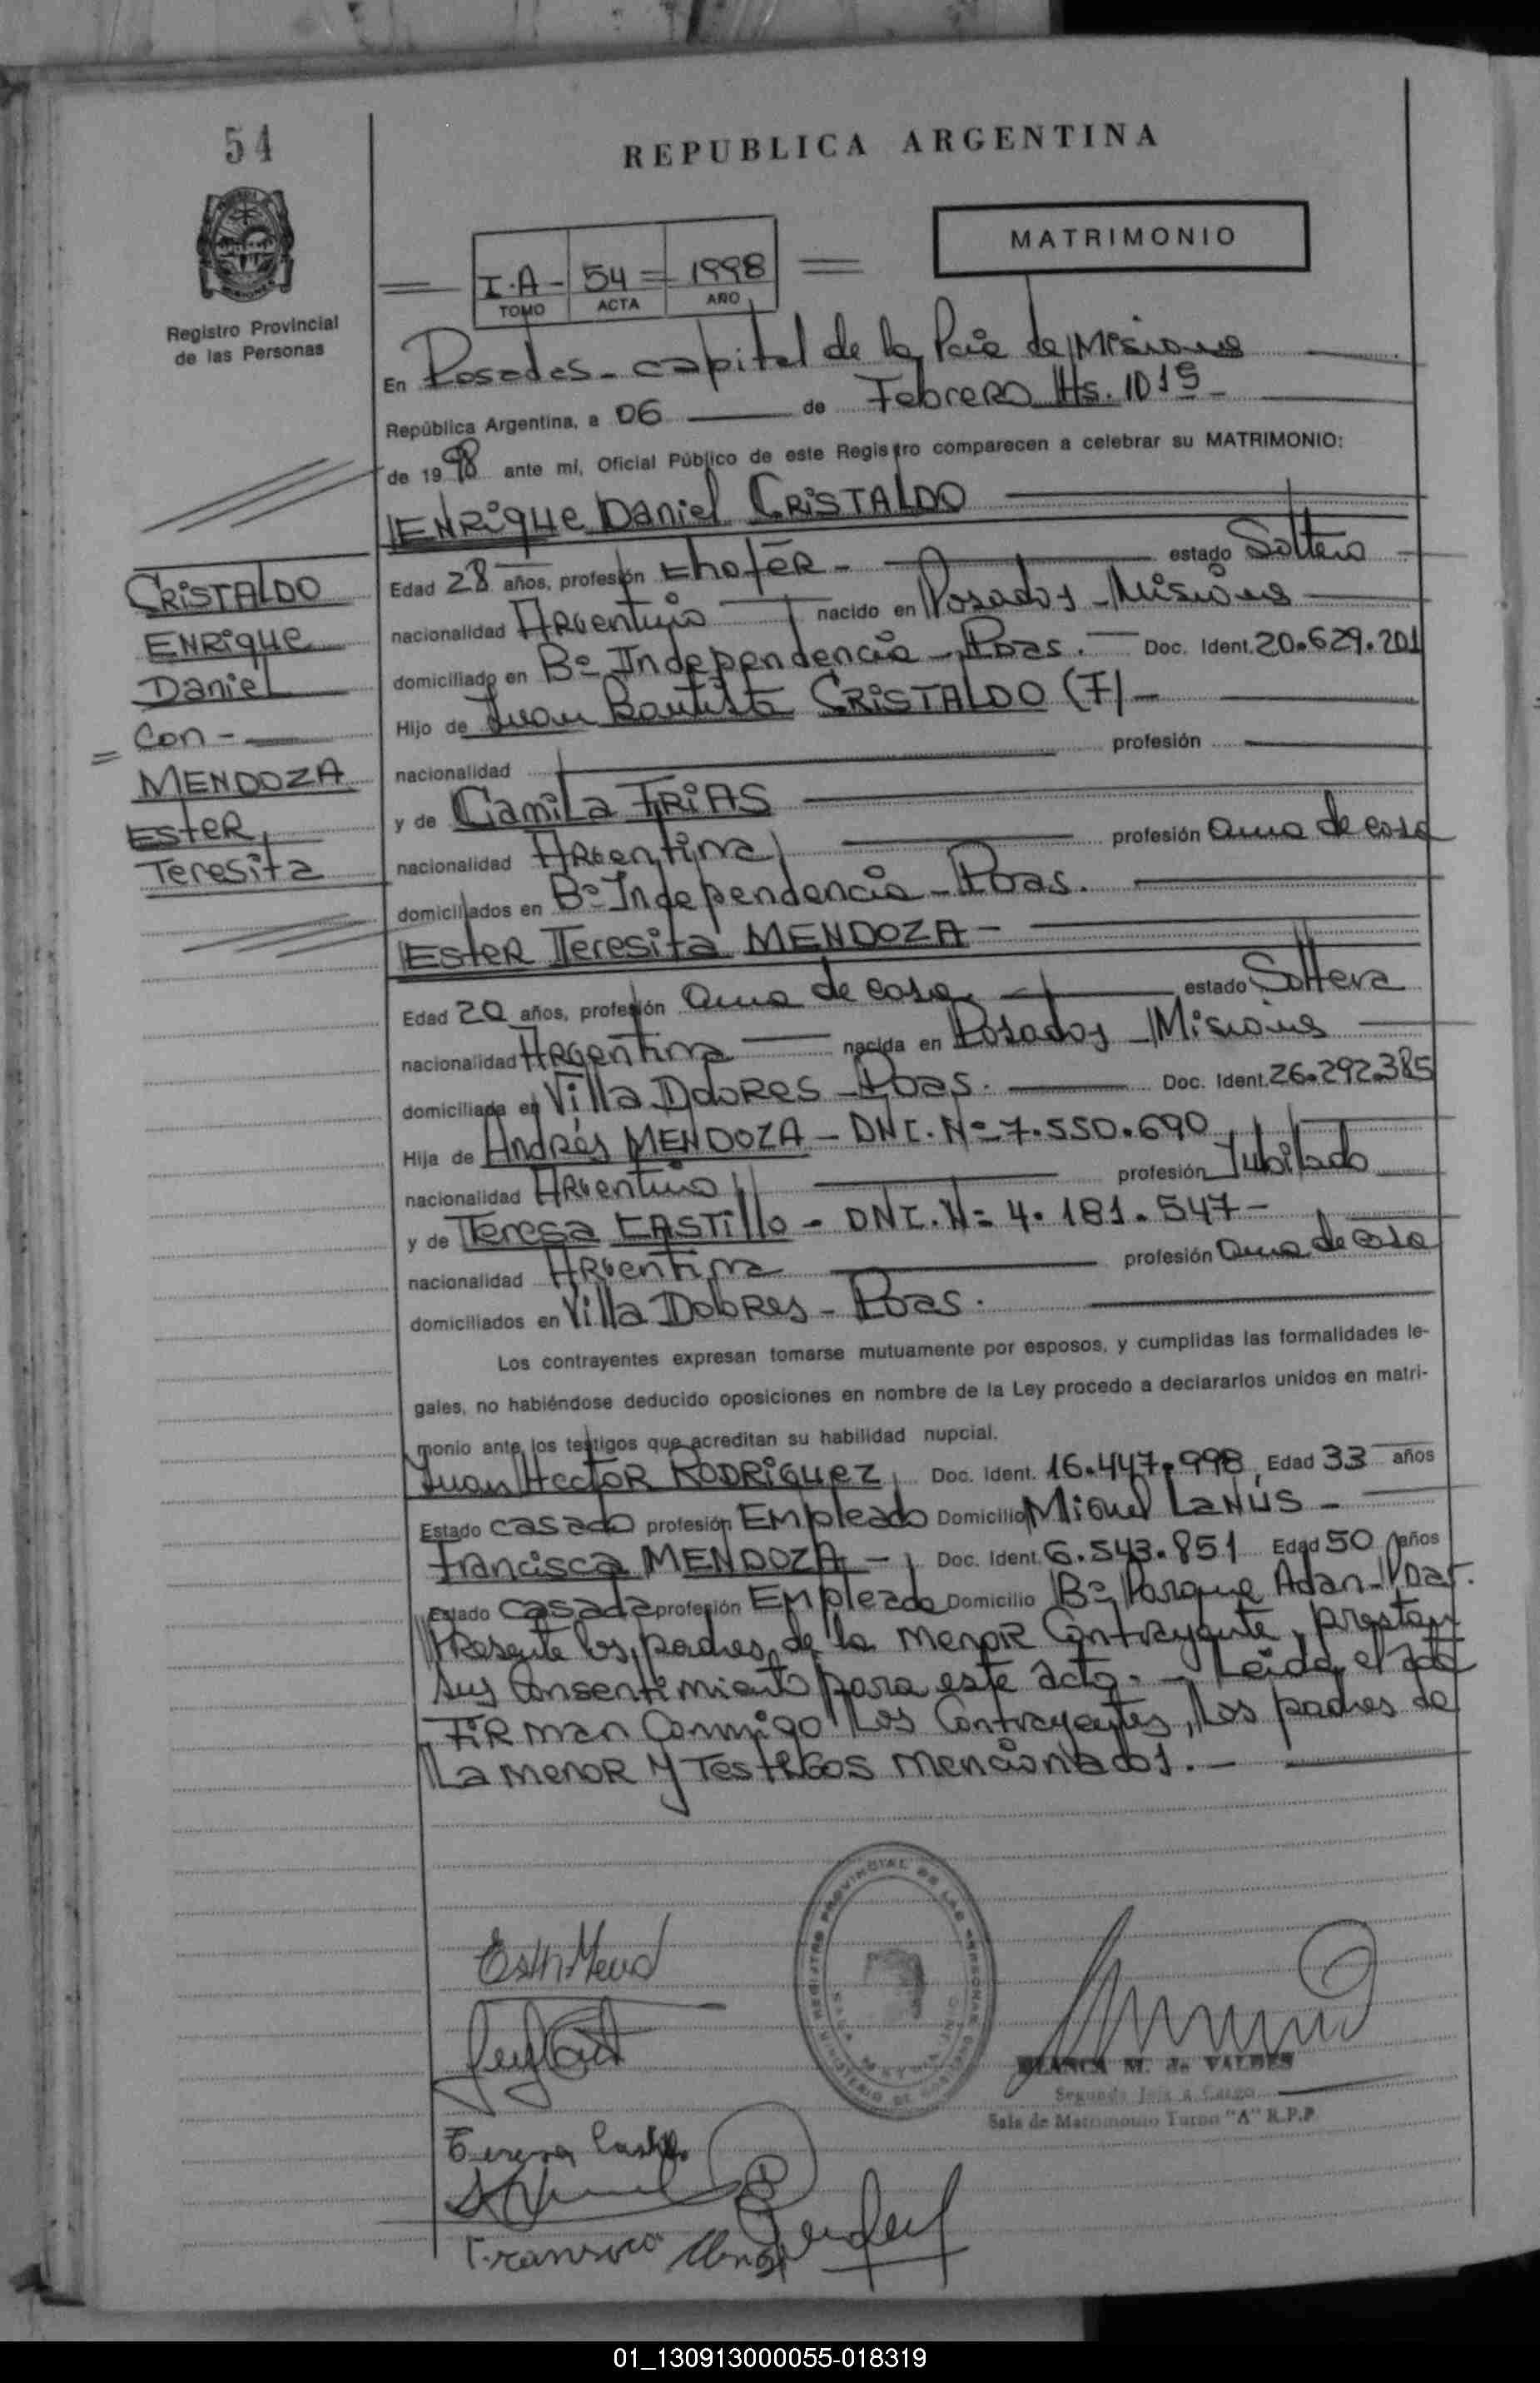 54
REPUBLICA ARGENTINA
MATRIMONIO
I.A - 54 = 1998
TOMO ACTA AÑO
Registro Provincial
de las Personas
En Posadas - capital de la Pcia de Misiones
República Argentina, a 06 de Febrero Hs. 1015
de 1998 ante mí, Oficial Público de este Registro comparecen a celebrar su MATRIMONIO:
ENRIQUE Daniel CRISTALDO
Edad 28 años, profesión chofer - estado Soltero
nacionalidad Argentino nacido en Posadas - Misiones
domiciliado en Bº Independencia - Pdas. Doc. Ident. 20.629.201
Hijo de Juan Bautista CRISTALDO (F) -
nacionalidad profesión
y de Camila FRIAS
nacionalidad Argentina profesión ama de casa
domiciliados en Bº Independencia - Pdas.
CRISTALDO
ENRIQUE
Daniel
Con -
= MENDOZA
Ester
Teresita
ESTER Teresita MENDOZA -
Edad 20 años, profesión ama de casa. estado Soltera
nacionalidad Argentina nacida en Posadas - Misiones
domiciliada en Villa Dolores - Pdas. Doc. Ident. 26.292.385
Hija de Andrés MENDOZA - DNI. Nº 7.550.690
nacionalidad Argentino profesión Jubilado
y de Teresa CASTILLO - DNI. Nº 4.181.547 -
nacionalidad Argentina profesión ama de casa
domiciliados en Villa Dolores - Pdas.
Los contrayentes expresan tomarse mutuamente por esposos, y cumplidas las formalidades le-
gales, no habiéndose deducido oposiciones en nombre de la Ley procedo a declararlos unidos en matri-
monio ante los testigos que acreditan su habilidad nupcial.
Juan Hector RODRIGUEZ, Doc. Ident. 16.447.998, Edad 33 años
Estado casado profesión Empleado Domicilio Miguel Lanús -
Francisca MENDOZA -, Doc. Ident. 6.543.851 Edad 50 años
Estado casada profesión Empleada Domicilio Bº Parque Adan - Pdas.
Presente los padres de la menor Contrayente, prestan
sus Consentimiento para este acto. - Leida el acta
Firman Conmigo Los Contrayentes, los padres de
La menor y Testigos mencionados. -
REGISTRO PROVINCIAL DE LAS PERSONAS
MINISTERIO DE GOBIERNO
Teresa Castillo
BLANCA M. de VALDES
Segundo Jefe a Cargo
Sala de Matrimonio Turno "A" R.P.P.
01_130913000055-018319